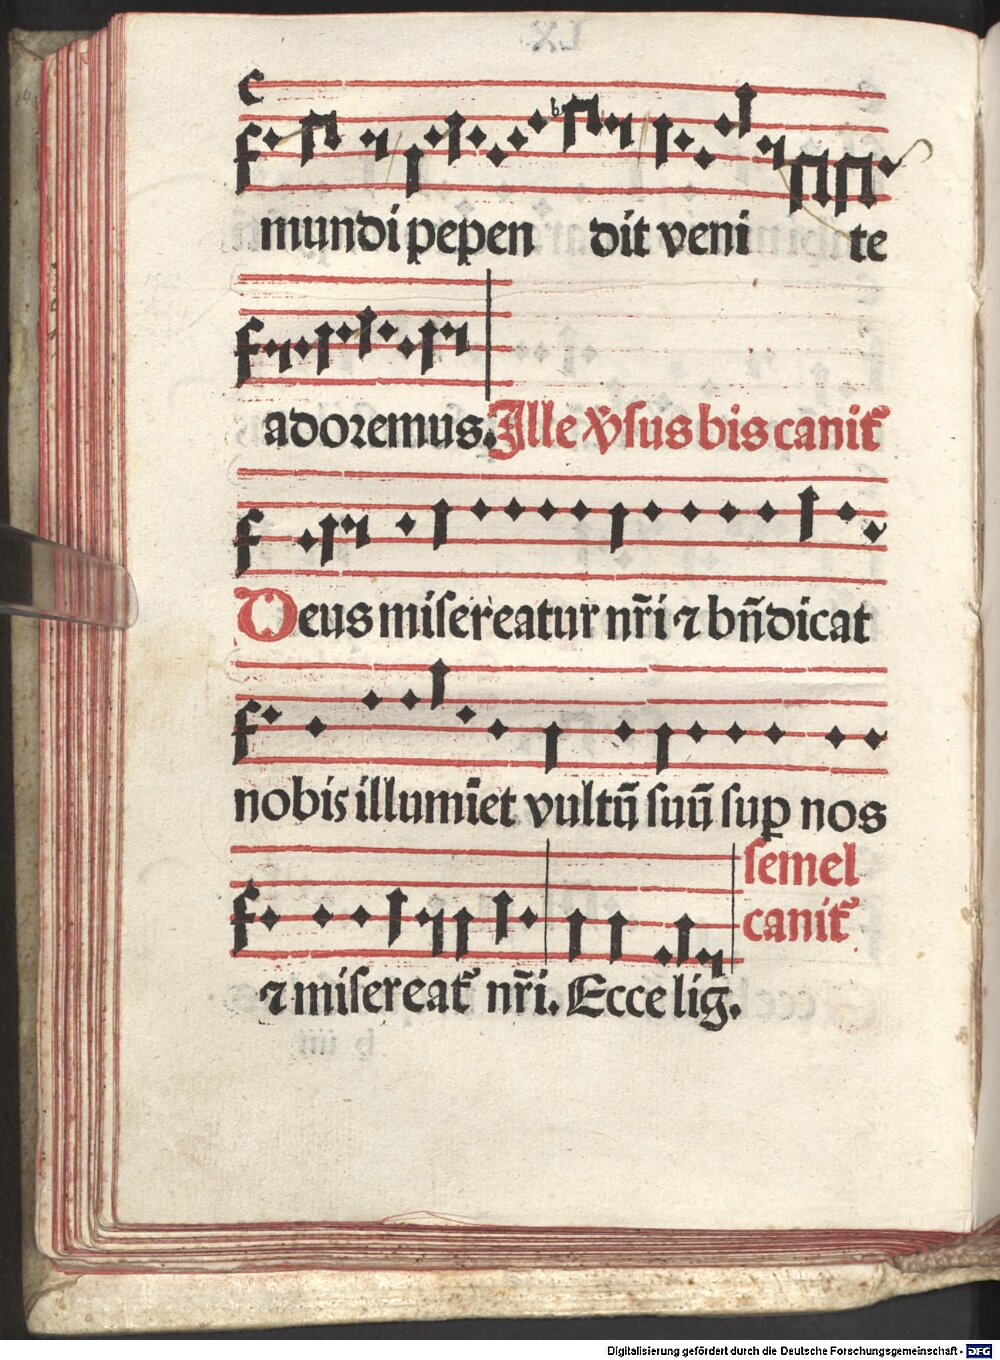 mundi pepen dit veni te
adoremus. Ille v̄sus bis canit᷑
Deus misereatur nr̄i ⁊ bn̄dicat
nobis illumīet vultū suū suꝑ nos
semel
canit᷑
⁊ misereat᷑ nr̄i. Ecce lig.
Digitalisierung gefördert durch die Deutsche Forschungsgemeinschaft - DFG